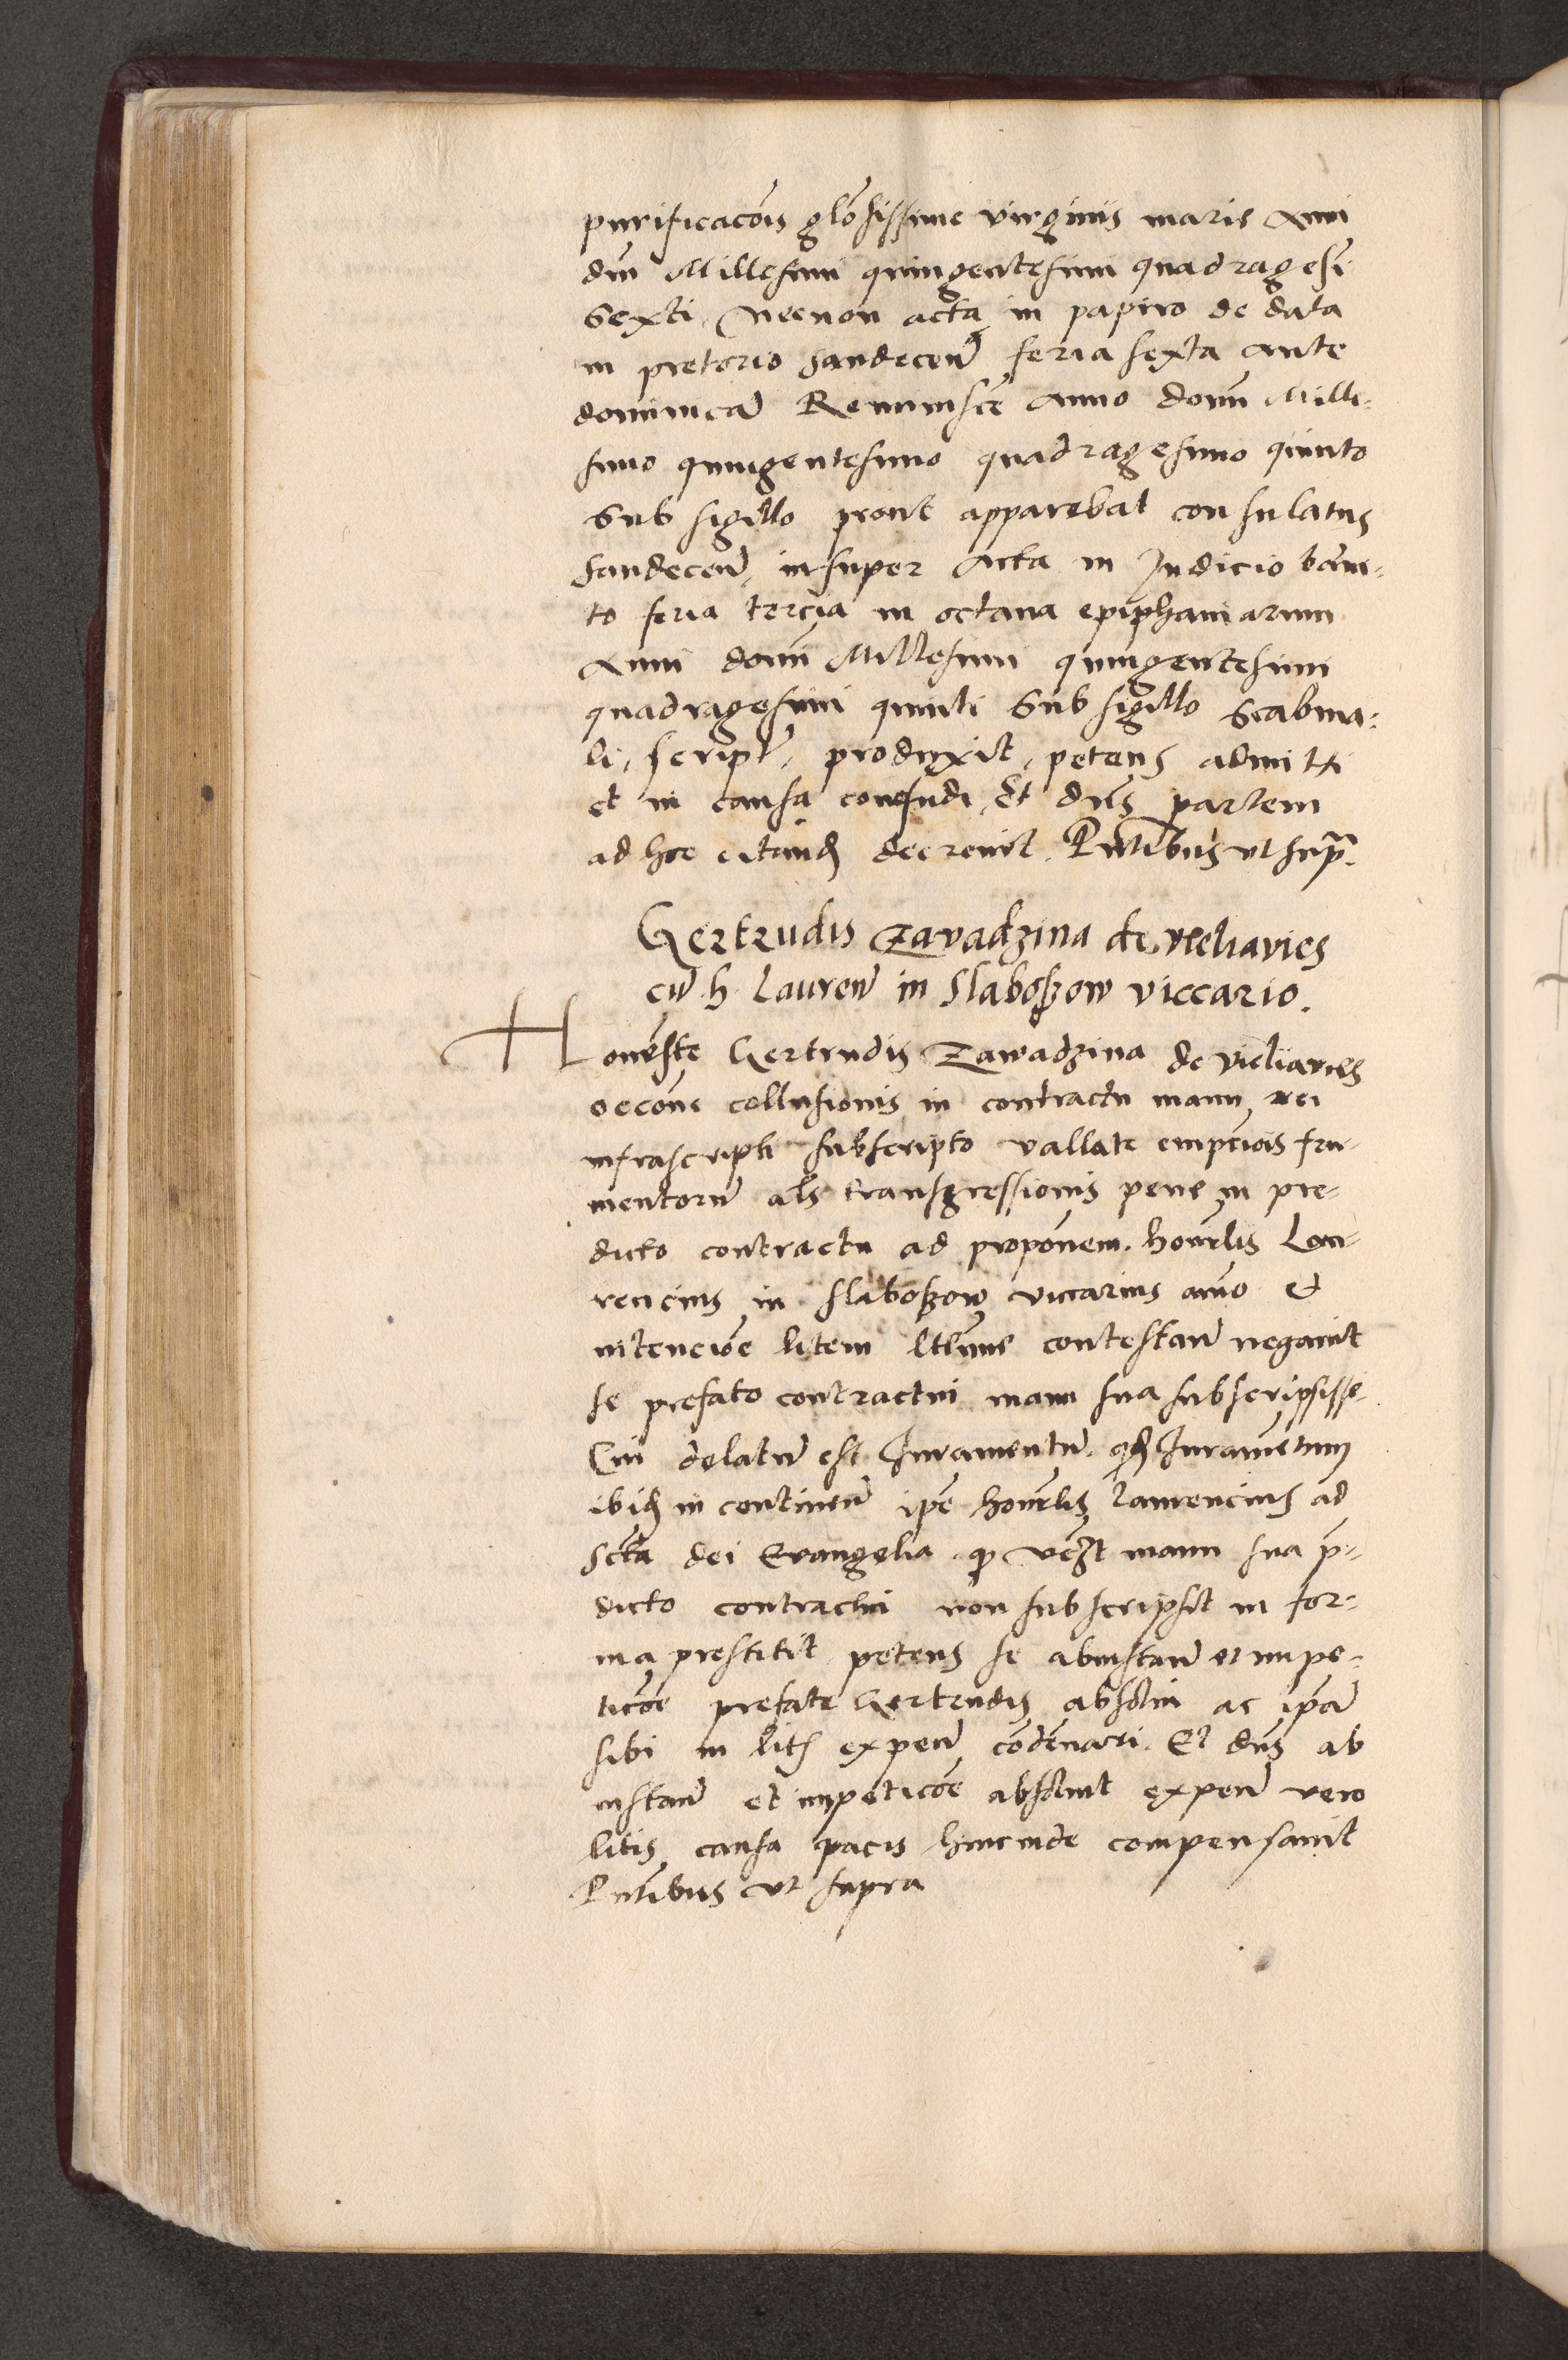 purificacõis glõsissime virginis marie Anni
dñi Millesimi quingentesimi quadragesi
Sexti, Necnon acta in papiro de data
in pretorio Sandecen̄ feria sexta ante
dominicā Reminiscē Anno domī Mille-
simo quingentesimo quadragesimo quinto
Sub sigillo prout apparebat consulatus
Sandecen̄, insuper Acta in Judicio bāni-
to feria tercia in octava epiphaniarum
Anni domī Millesimi quingentesimi
quadragesimi quinti Sub sigillo Scabina-
li, script̄, produxit, petens admitti
et in causa concludi, Et dn̄s partem
ad hec citanđ decrevit. Pn̄tibus ut supra.
Gertrudis Zavadzina de vieliavies
cū h. Lauren̄ in Slaboszow viccario.
Honeste Gertrudis Zawadzina de vieliavies
occōne collusionis in contractu manu rei
infrascripti subscripto vallate empciōis fru-
mentorū al̄s transgressionis pene in pre-
dicto contractu ad propōnem. honorlis Lau-
rencius in Slaboszow viccarius aīmo et
intenciōe litem ltīme contestan̄ negavit
se prefato contractui manu sua subscripsisse
Cui delatū est Juramentū. qđ Juramētum
ibiđ in continen̄ ip̄e honorlis Laurencius ad
Sctā dei Evangelia. qz manu sua p̄-
dicto contractui non subscripsit in for-
ma prestitit petens se abinstan̄ et impe-
ticōe prefate Gertrudis absolvi ac ip̄ā
sibi in litis expen̄ cōdēnari. Et dn̄s ab
instan̄ et impeticōe absolvit expen̄ vero
litis causa pacis hincinde compensavit
Pn̄tibus ut supra